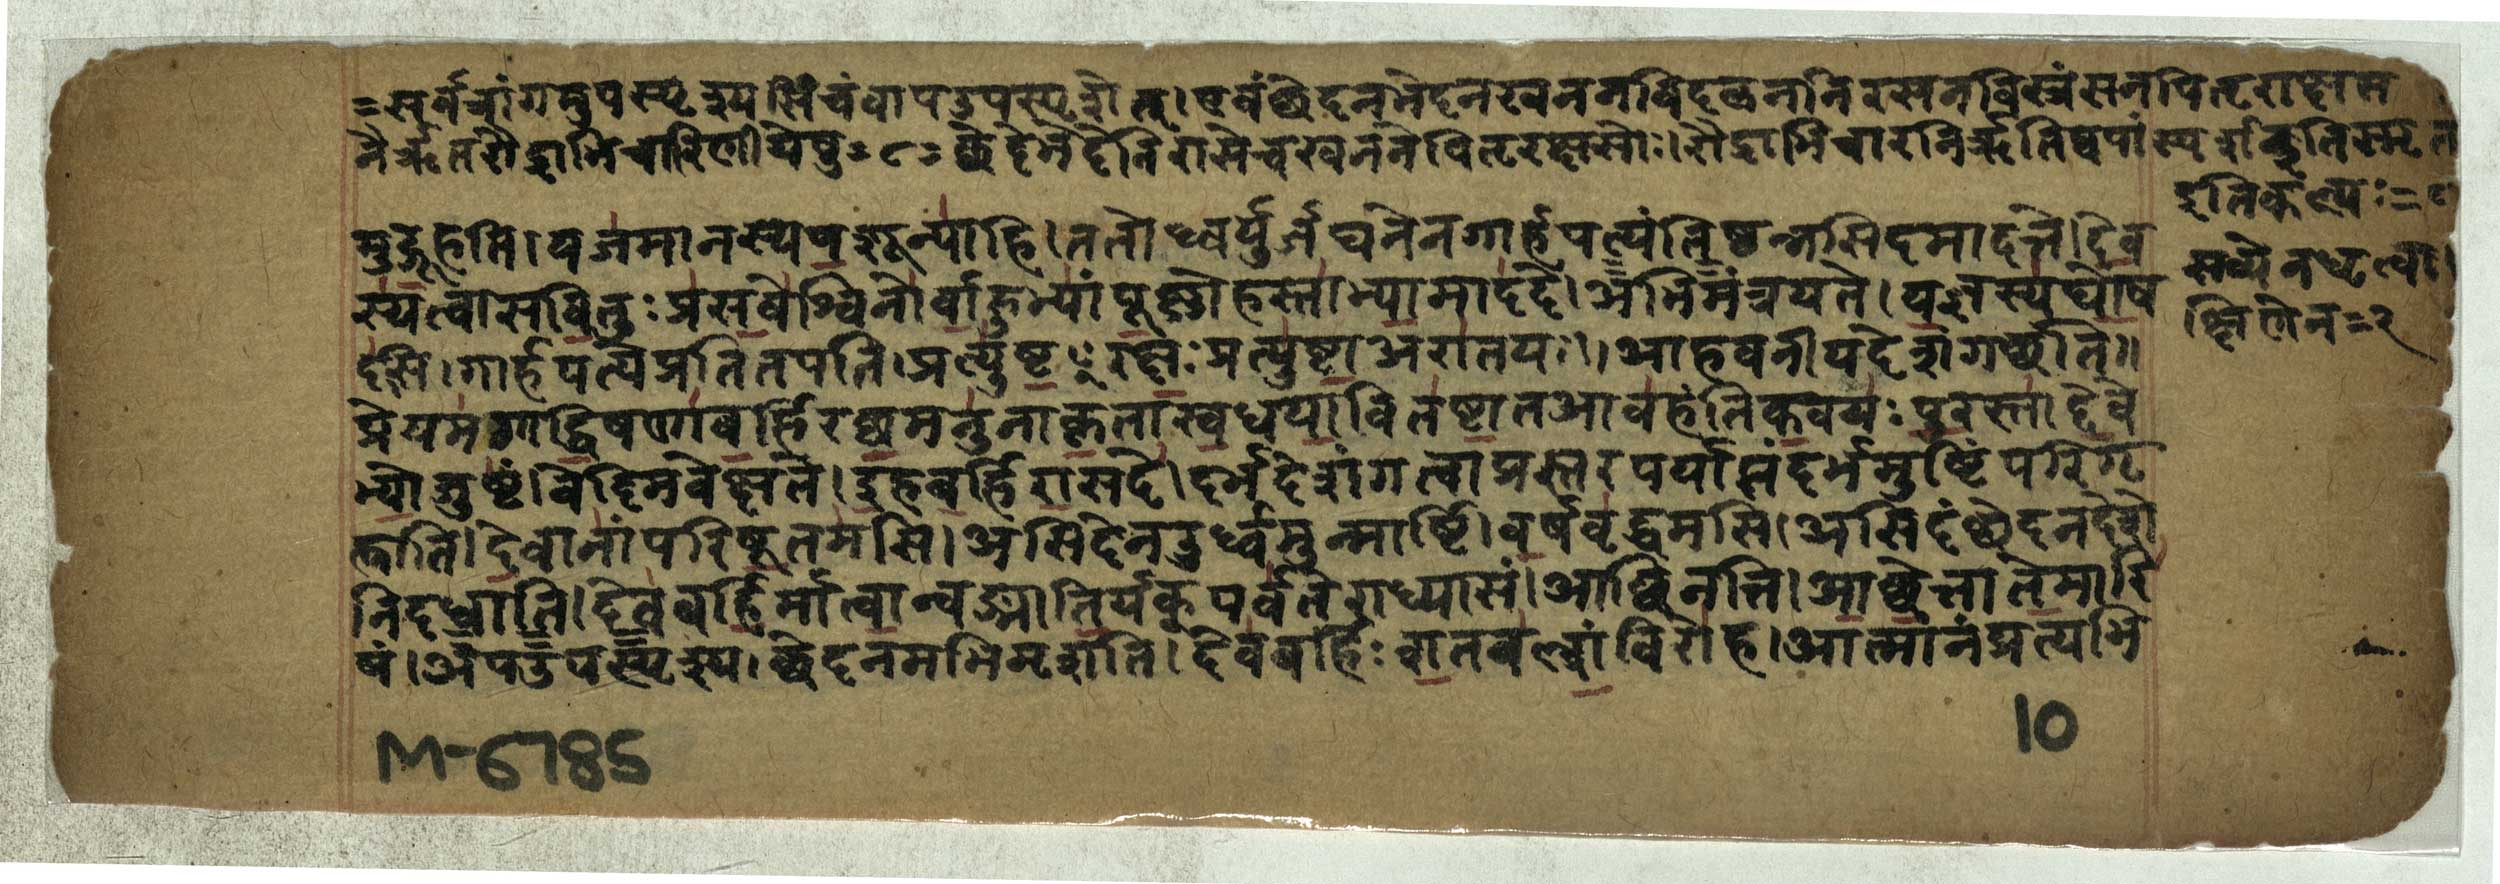 =सर्वत्रांगमुपस्पृश्य सिंचेद्वापउपस्पृशेत्। एवंछेदनभेदनखनननिरसनपितृराक्षस
नैर्ऋतरौद्राभिचारिणीयेषु=८= छेदेभेदेनिरासेचखननेपितृरक्षसोः। रौद्राभिचारनिर्ऋतिष्वपांस्पर्श
इतिकल्पः=
मुद्गृहति। यजमानस्यपशून्पाहि। ततोध्वर्युर्जघनेनगार्हपत्यंतिष्ठन्नसिदमादत्ते। देव
स्यत्वासवितुः प्रसवेश्विनोर्बाहुभ्यां पूष्णोहस्ताभ्यामाददे। अभिमंत्रयते। यज्ञस्यघोष
दसि। गार्हपत्येप्रतितपति। प्रत्युष्टꣳरक्षः प्रत्युष्टाअरातयः। आहवनीयदेशंगच्छति॥
प्रेयमगाद्धिषणाबर्हिरछमनुनाकृतास्वधयावितष्टातआवहंतिकवयः पुरस्ताद्देवे
भ्योजुष्टं। वेदिमवेक्षते। इहबर्हिरासदे। दर्भदेशंगत्वाप्रस्तरपर्याप्तंदर्भमुष्टिंपरिगृ
ह्णाति। देवानांपरिषूतमसि। असिदेनऊर्ध्वमुन्मार्ष्टि। वर्षवृद्धमसि। असिदंछेदनदेशे
निदधाति। देवबर्हिर्मात्वान्वङ्मातिर्यक्पर्वतेराध्यासं। आछिनत्ति। आछेत्तातेमारि
षं। अपउपस्पृश्य। छेदनमभिमृशति। देवबर्हिः शतवल्शंविरोह। आत्मानंप्रत्यभि
M-6785
10